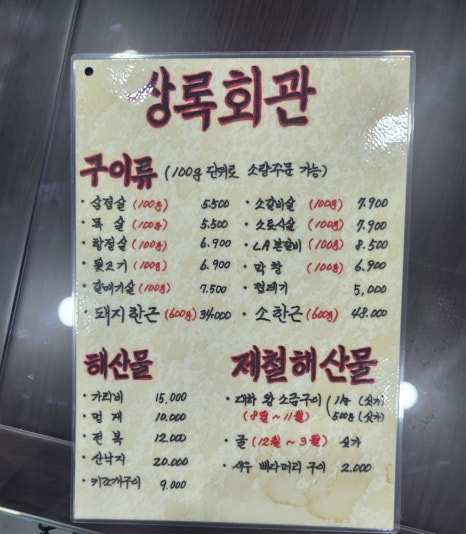 상록회관
구이류 (100g 단위로 소량주문 가능)
· 삼겹살 (100g) 5.500
· 목살 (100g) 5.500
· 항정살 (100g) 6.900
· 뒷고기 (100g) 6.900
· 갈매기살 (100g) 7.500
· 돼지한근 (600g) 34.000
· 소갈비살 (100g) 7.900
· 소토시살 (100g) 7.900
· LA본갈비 (100g) 8.500
· 막창 (100g) 6.900
· 껍데기 5,000
· 소한근 (600g) 48.000
해산물
· 가리비 15,000
· 멍게 10.000
· 전복 12.000
· 산낙지 20.000
· 키조개구이 9.000
제철해산물
· 대하 왕 소금구이 1kg (싯가)
(8월~11월) 500g (싯가)
· 굴 (12월~3월) 싯가
· 새우 빠다머리 구이 2.000